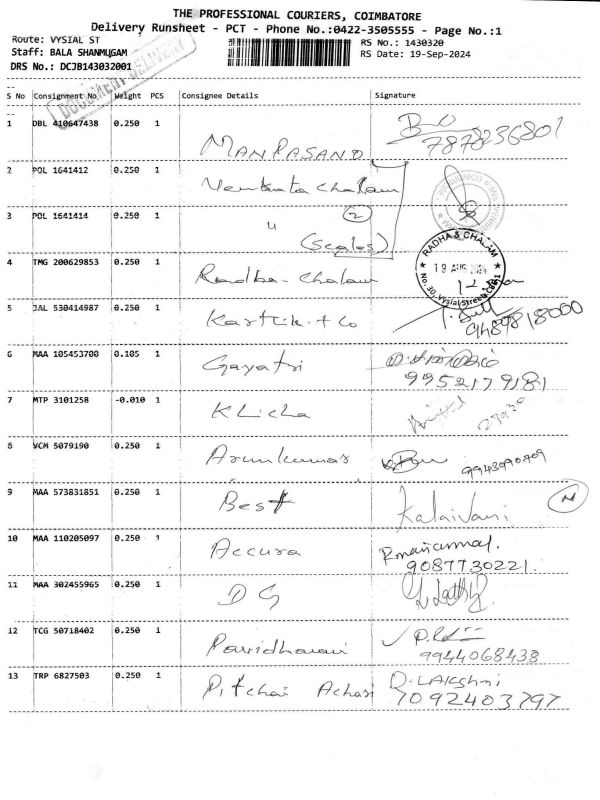 THE PROFESSIONAL COURIERS, COIMBATORE
Delivery Runsheet - PCT - Phone No.:0422-3505555 - Page No.:1
Route: VYSIAL ST
RS No.: 1430320
Staff: BALA SHANMUGAM
RS Date: 19-Sep-2024
DRS No.: DCJB143032001
DOCUMENT DELIVERY
S No Consignment No. Weight PCS Consignee Details Signature
1 DBL 410647438 0.250 1 MANPASAND 7878236801
2 POL 1641412 0.250 1 Venkata Chalam
3 POL 1641414 0.250 1 " (2) (Scales)
RADHA & CHALAM
19 AUG
No. 30, Vysial Street, CBE-1
4 TMG 200629853 0.250 1 Radha-Chalam
5 JAL 530414987 0.250 1 Karthik + Co 9489818000
6 MAA 105453700 0.105 1 Gayatri 9952179181
7 MTP 3101258 -0.010 1 Klicha
8 VCM 5079190 0.250 1 Arunkumar 9943090709
9 MAA 573831851 0.250 1 Best Kalaivani
10 MAA 110205097 0.250 1 Accura R.mariammal.
9087730221.
11 MAA 302455965 0.250 1 DG
12 TCG 50718402 0.250 1 9944068438
13 TRP 6827503 0.250 1 Pitchai Achari D. LAKshmi
7092403797